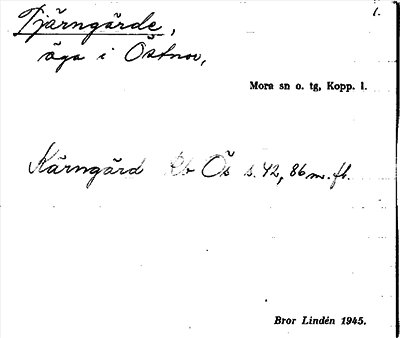 Tjärngärde,
1.
äga i Östnor,
Mora sn o. tg, Kopp. l.
Kärngärd Rb Ös s. 42, 86 m. fl.
Bror Lindén 1945.